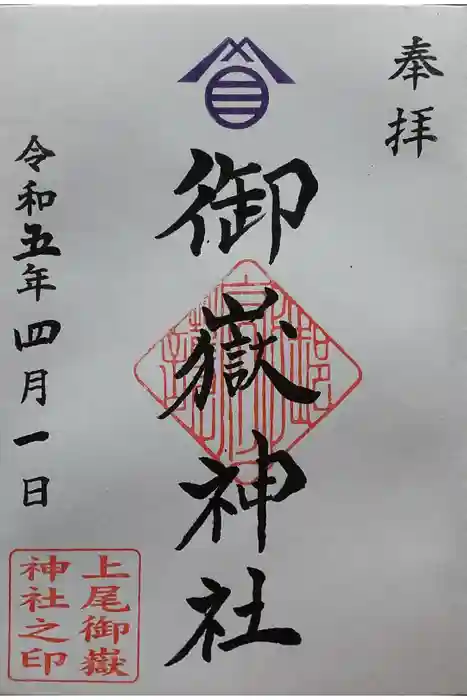 奉拝
御嶽神社
令和五年四月一日
上尾御嶽
神社之印